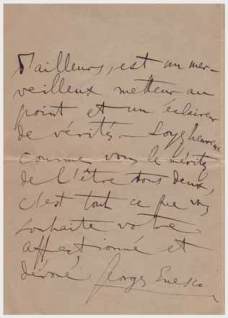 d'ailleurs, est un mer-
veilleux metteur au
point et un éclaireur
de vérités – Soyez heureux
comme vous le méritez
de l'être tous deux,
c'est tout ce que vous
souhaite votre
affectionné et
dévoué Georges Enesco